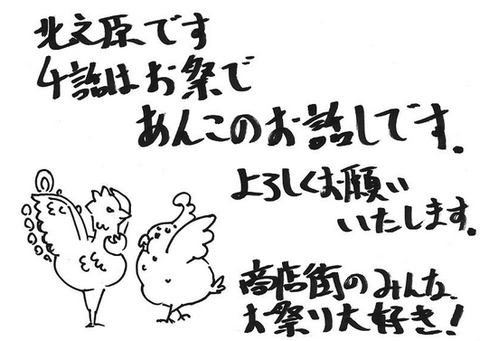 北之原です
4話はお祭で
あんこのお話しです。
よろしくお願い
いたします。
商店街のみんな、
お祭り大好き!